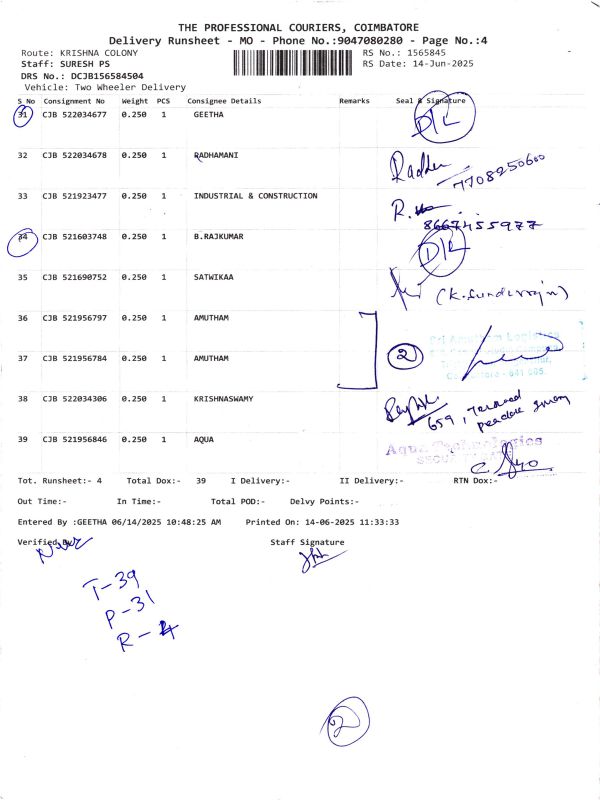 THE PROFESSIONAL COURIERS, COIMBATORE
Delivery Runsheet - MO - Phone No.:9047080280 - Page No.:4
Route: KRISHNA COLONY RS No.: 1565845
Staff: SURESH PS RS Date: 14-Jun-2025
DRS No.: DCJB156584504
Vehicle: Two Wheeler Delivery
S No Consignment No Weight PCS Consignee Details Remarks Seal & Signature
31 CJB 522034677 0.250 1 GEETHA D/L
32 CJB 522034678 0.250 1 RADHAMANI
7708250600
33 CJB 521923477 0.250 1 INDUSTRIAL & CONSTRUCTION
8667455977
34 CJB 521603748 0.250 1 B.RAJKUMAR D/L
35 CJB 521690752 0.250 1 SATWIKAA (K. Sunderrajn)
36 CJB 521956797 0.250 1 AMUTHAM
Sri Amutham Logistics
2
37 CJB 521956784 0.250 1 AMUTHAM
38 CJB 522034306 0.250 1 KRISHNASWAMY
659,
39 CJB 521956846 0.250 1 AQUA
Aqua Technologies
Tot. Runsheet:- 4 Total Dox:- 39 I Delivery:- II Delivery:- RTN Dox:-
Out Time:- In Time:- Total POD:- Delvy Points:-
Entered By :GEETHA 06/14/2025 10:48:25 AM Printed On: 14-06-2025 11:33:33
Verified By Staff Signature
T-39
P-31
R-4
2